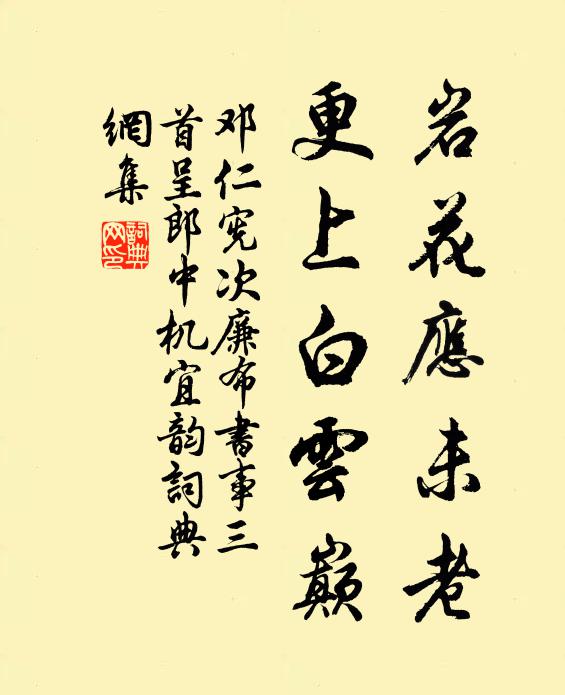 岩花應未老
更上白雲巔
邓仁宪次廉布書事三
首呈郎中机宜韵詞典
網集
詞典网印